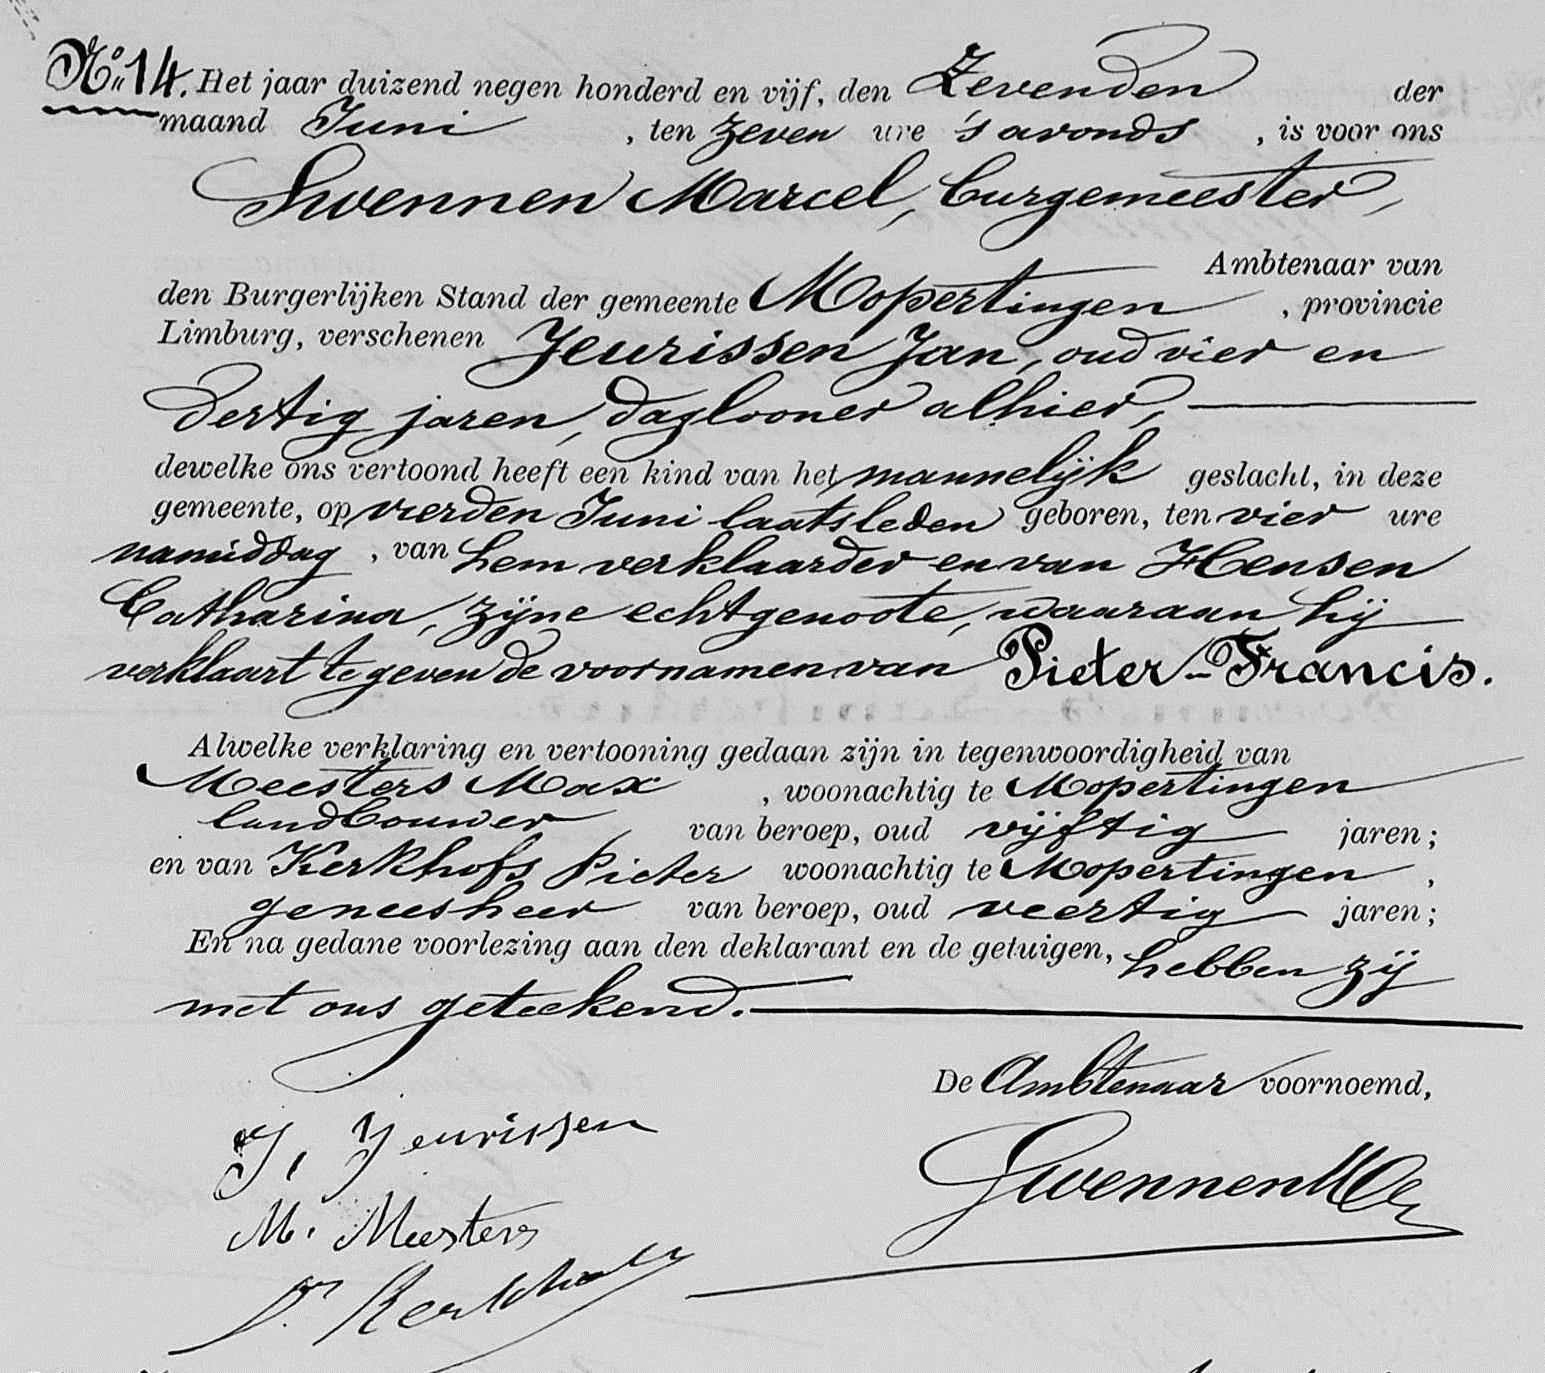 No 14. Het jaar duizend negen honderd en vijf, den Zevenden der
maand Juni, ten zeven ure 's avonds, is voor ons
Swennen Marcel, burgemeester,
Ambtenaar van
den Burgerlijken Stand der gemeente Mopertingen, provincie
Limburg, verschenen Jeurissen Jan, oud vier en
dertig jaren, daglooner alhier,
dewelke ons vertoond heeft een kind van het mannelijk geslacht, in deze
gemeente, op vierden Juni laatsleden geboren, ten vier ure
namiddag, van hem verklaarder en van Hensen
Catharina, zijne echtgenoote, waaraan hij
verklaart te geven de voornamen van Pieter-Francis.
Alwelke verklaring en vertooning gedaan zijn in tegenwoordigheid van
Meesters Max, woonachtig te Mopertingen
landbouwer van beroep, oud vijftig jaren;
en van Kerkhofs Pieter woonachtig te Mopertingen,
geneesheer van beroep, oud veertig jaren;
En na gedane voorlezing aan den deklarant en de getuigen, hebben zij
met ons geteekend.
De Ambtenaar voornoemd,
J, Jeurissen
Swennen
M. Meesters
Kerkhofs